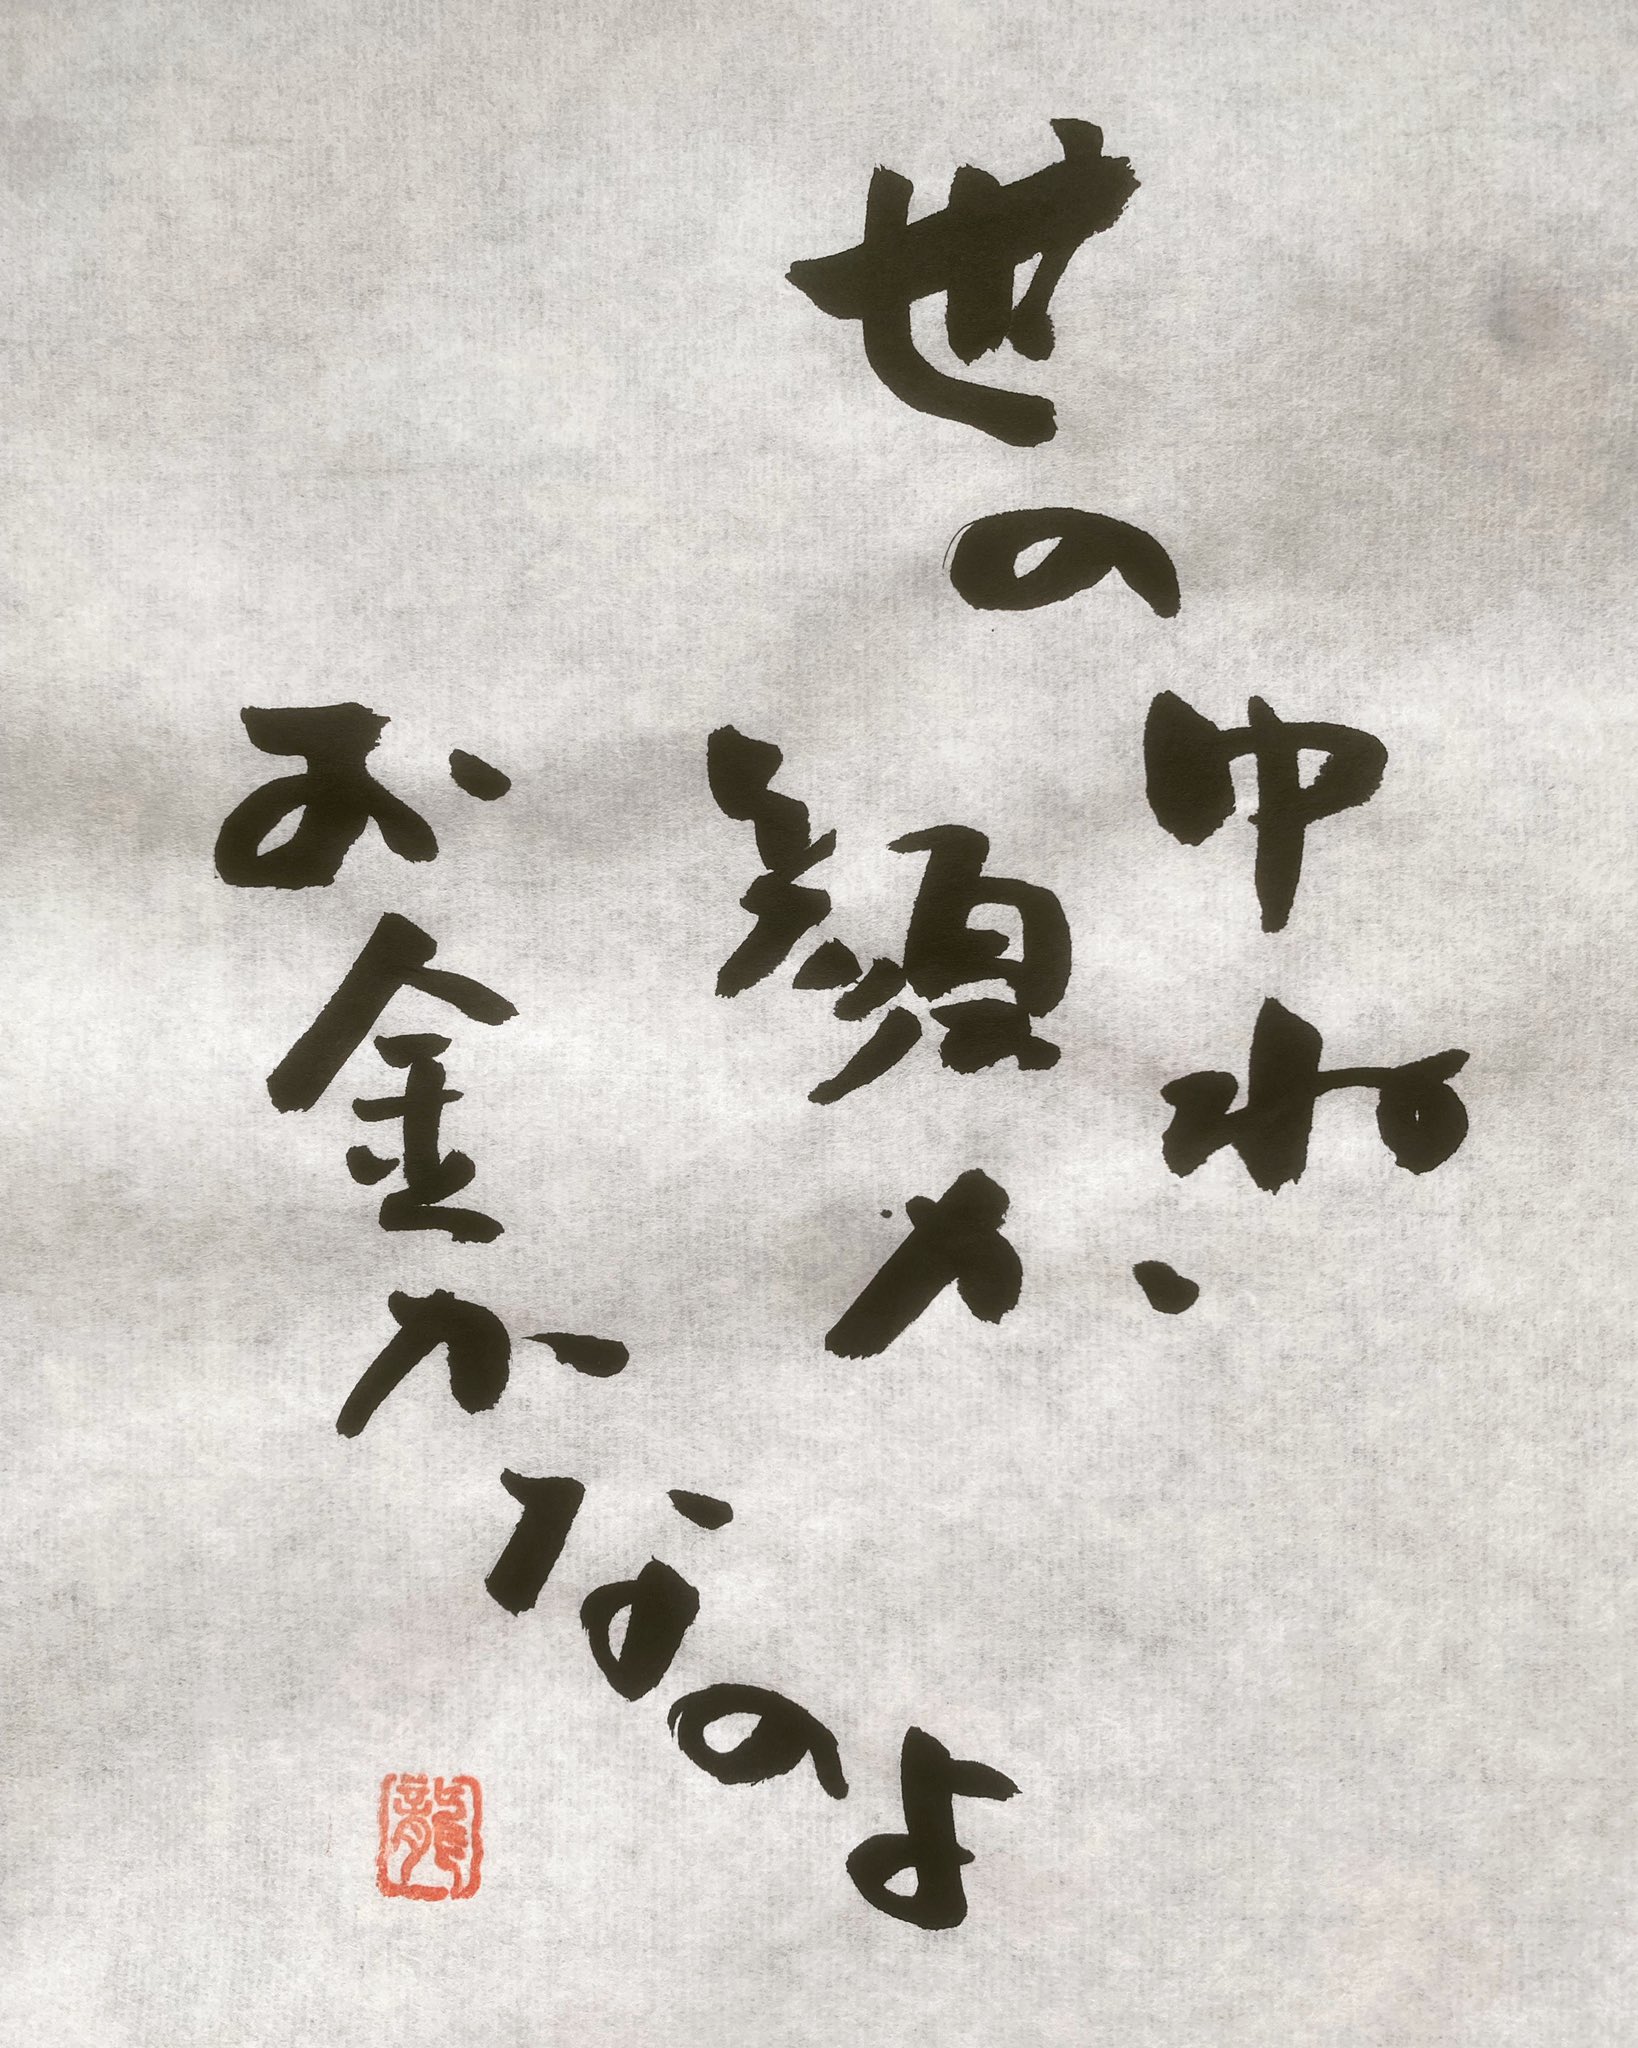 世の中ね
顔か
お金かなのよ
龍